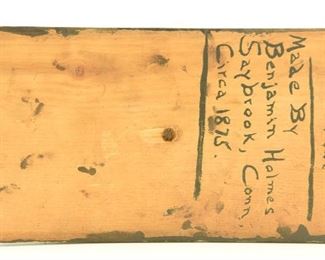 Made By
Benjamin Holmes
Saybrook, Conn.
Circa 1875.